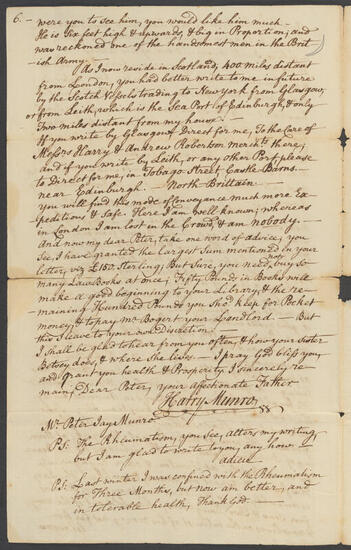 6. — were you to see him, you would like him much —
He is Six feet high & upwards, & big in Proportion; and
was reckoned one of the handsomest men in the Brit
ish Army —
As I now reside in Scotland, 400 miles distant
from London, you had better write to me in future
by the Scotch Vessels trading to New York from Glasgow,
or from Leith, which is the Sea Port of Edinburgh, & only
Two miles distant from my house.
If you write by Glasgow Direct for me, To the Care of
Messrs Harry & Andrew Robertson merchts there;
and if you write by Leith, or any other Port, please
to Direct for me, in Tobago Street Castle Barns,
near Edinburgh — North Brittain —
You will find this mode of Conveyance much more Ex
peditious & Safe. Here I am well known; whereas
in London I am lost in the Crowd, & am nobody. —
And now my dear Peter, take one word of advice; you
See, I have granted the largest Sum mentioned in your
letter, viz £150 Sterling; But Sure, you need not buy so
many Law Books at once; Fifty Pounds in Books will
make a good beginning to your Library; & the re-
maining Hundred Pounds you Shod keep for Pocket
money, & to pay Mr Bogert your Landlord. — But
this I leave to your own Discretion. —
I shall be glad to hear from you often, & how your Sister
Betsey does, & where She lives — I pray God bless you,
and grant you health & Prosperity. I sincerely re
main, Dear Peter, your affectionate Father
Harry Munro
Mr Peter Jay Munro
PS: The Rheumatism, you See, alters my writing,
but I am glad to write to you, any how —
adieu
PS: Last winter I was confined with the Rheumatism
for Three Months, but now am better, and
in tolerable health, Thank God. —